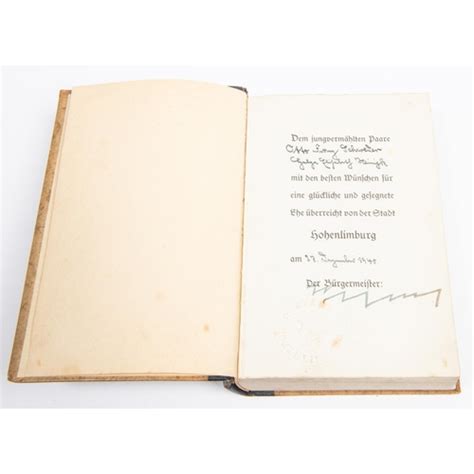 Dem jungvermählten Paare
Otto
mit den besten Wünschen für
eine glückliche und gesegnete
Ehe überreicht von der Stadt
Hohenlimburg
am 27. Dezember
Der Bürgermeister: